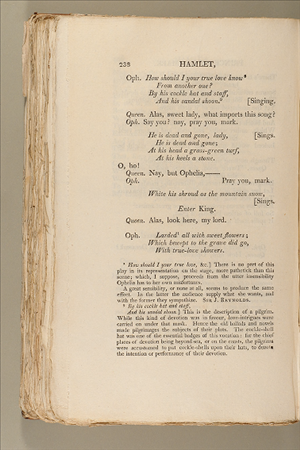 238 HAMLET,
Oph. How should I your true love know⁸
From another one?
By his cockle hat and staff,
And his sandal shoon.⁹ [Singing.
Queen. Alas, sweet lady, what imports this song?
Oph. Say you? nay, pray you, mark.
He is dead and gone, lady, [Sings.
He is dead and gone;
At his head a grass-green turf,
At his heels a stone.
O, ho!
Queen. Nay, but Ophelia,——
Oph. Pray you, mark.
White his shroud as the mountain snow,
[Sings.
Enter King.
Queen. Alas, look here, my lord.
Oph. Larded¹ all with sweet flowers;
Which bewept to the grave did go,
With true-love showers.
⁸ How should I your true love, &c.] There is no part of this
play in its representation on the stage, more pathetick than this
scene; which, I suppose, proceeds from the utter insensibility
Ophelia has to her own misfortunes.
A great sensibility, or none at all, seems to produce the same
effect. In the latter the audience supply what she wants, and
with the former they sympathize. SIR J. REYNOLDS.
⁹ By his cockle hat and staff,
And his sandal shoon.] This is the description of a pilgrim.
While this kind of devotion was in favour, love-intrigues were
carried on under that mask. Hence the old ballads and novels
made pilgrimages the subjects of their plots. The cockle-shell
hat was one of the essential badges of this vocation: for the chief
places of devotion being beyond sea, or on the coasts, the pilgrims
were accustomed to put cockle-shells upon their hats, to denote
the intention or performance of their devotion.